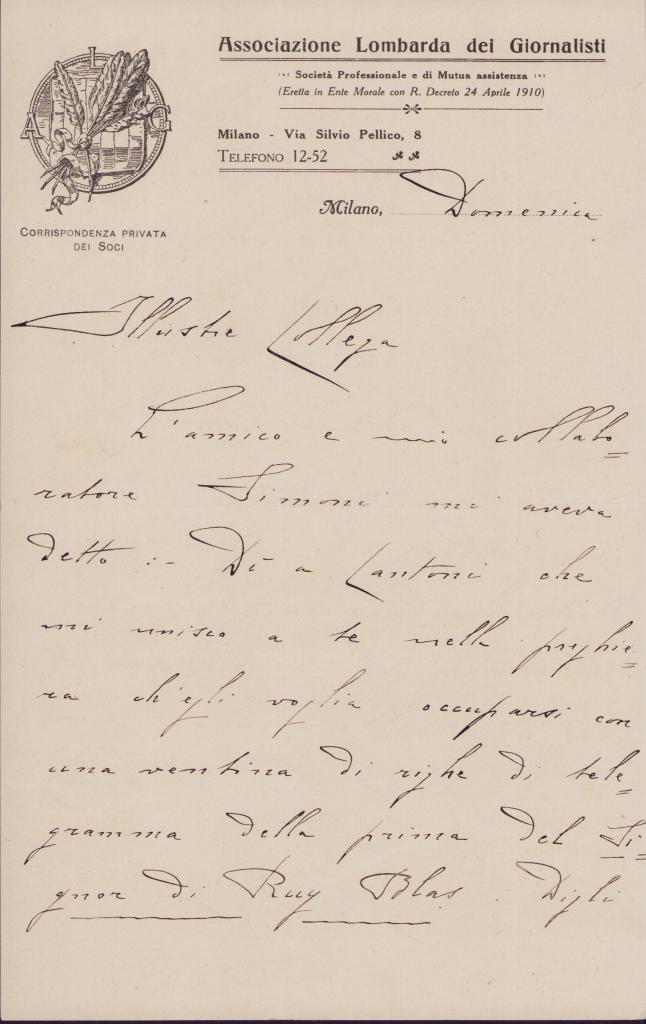 Associazione Lombarda dei Giornalisti
Società Professionale e di Mutua assistenza
(Eretta in Ente Morale con R. Decreto 24 Aprile 1910)
A L G
Milano - Via Silvio Pellico, 8
TELEFONO 12-52
Milano, Domenica
CORRISPONDENZA PRIVATA
DEI SOCI
Illustre Collega
L'amico e mio collabo=
ratore Simoni mi aveva
detto :- Dì a Cantoni che
mi unisco a te nella preghie=
ra ch'egli voglia occuparsi con
una ventina di righe di tele=
gramma della prima del Si=
gnor di Ruy Blas. Digli